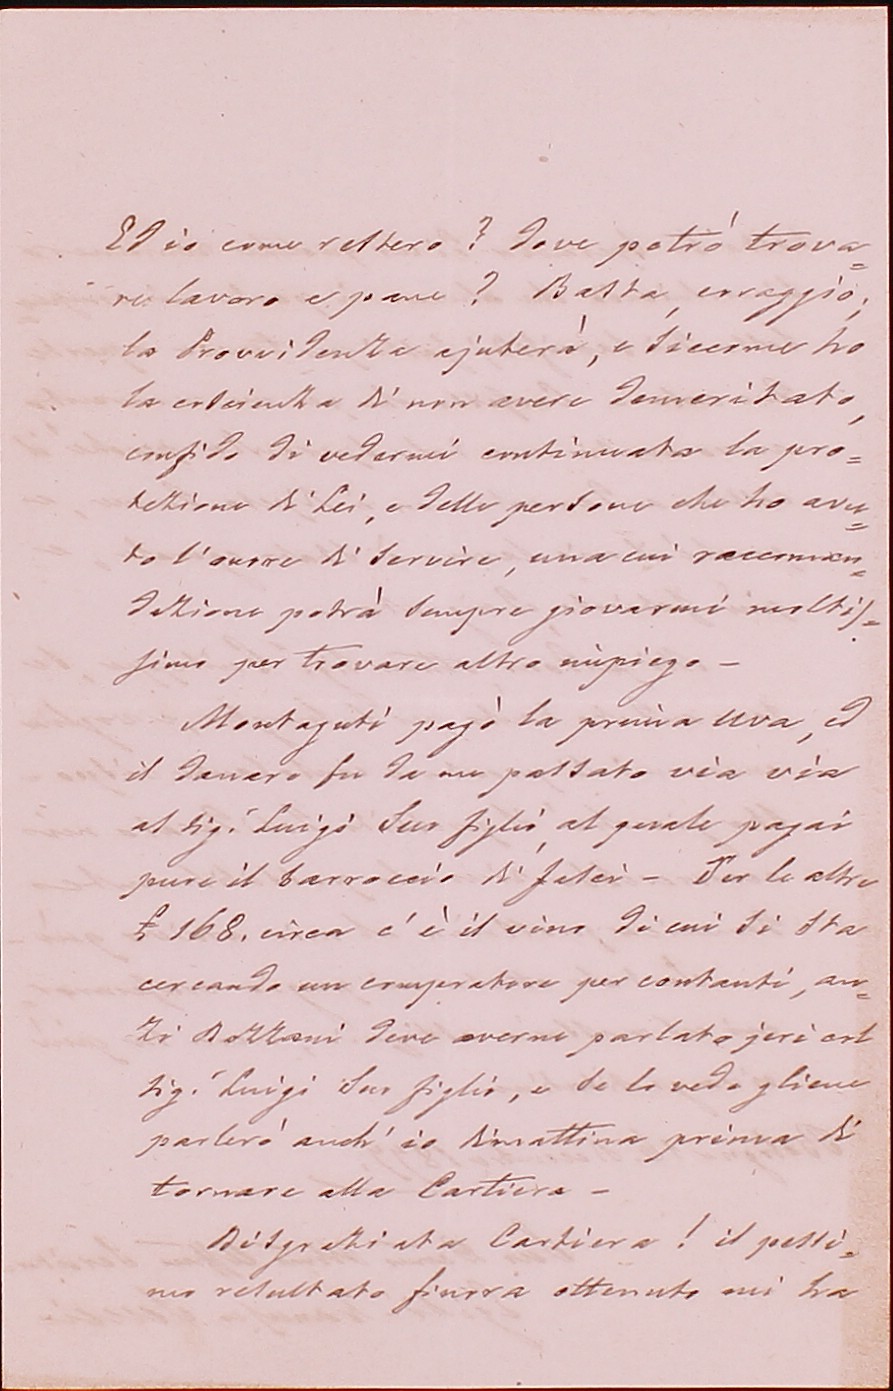 Ed io come resterò? Dove potrò trova=
re lavoro e pane? Basta, corraggio;
la Provvidenza ajuterà, e siccome ho
la coscienza di non avere demeritato,
confido di vedermi continuata la pro=
tezione di Lei, e delle persone che ho avu=
to l'onore di servire, una cui raccoman=
dazione potrà sempre giovarmi moltis=
simo per trovare altro impiego –
Montaguti pagò la prima Uva, ed
il danaro fu da me passato via via
al Sig.r Luigi Suo figlio, al quale pagai
pure il barroccio di
Per le altre
£ 168. circa c'è il vino di cui si sta
cercando un compratore per contanti, an=
zi Bozzani deve averne parlato jeri col
Sig.r Luigi Suo figlio, e se lo vedo gliene
parlerò anch'io dimattina prima di
tornare alla Cartiera –
Disgraziata Cartiera! il pessi=
mo resultato finora ottenuto mi ha